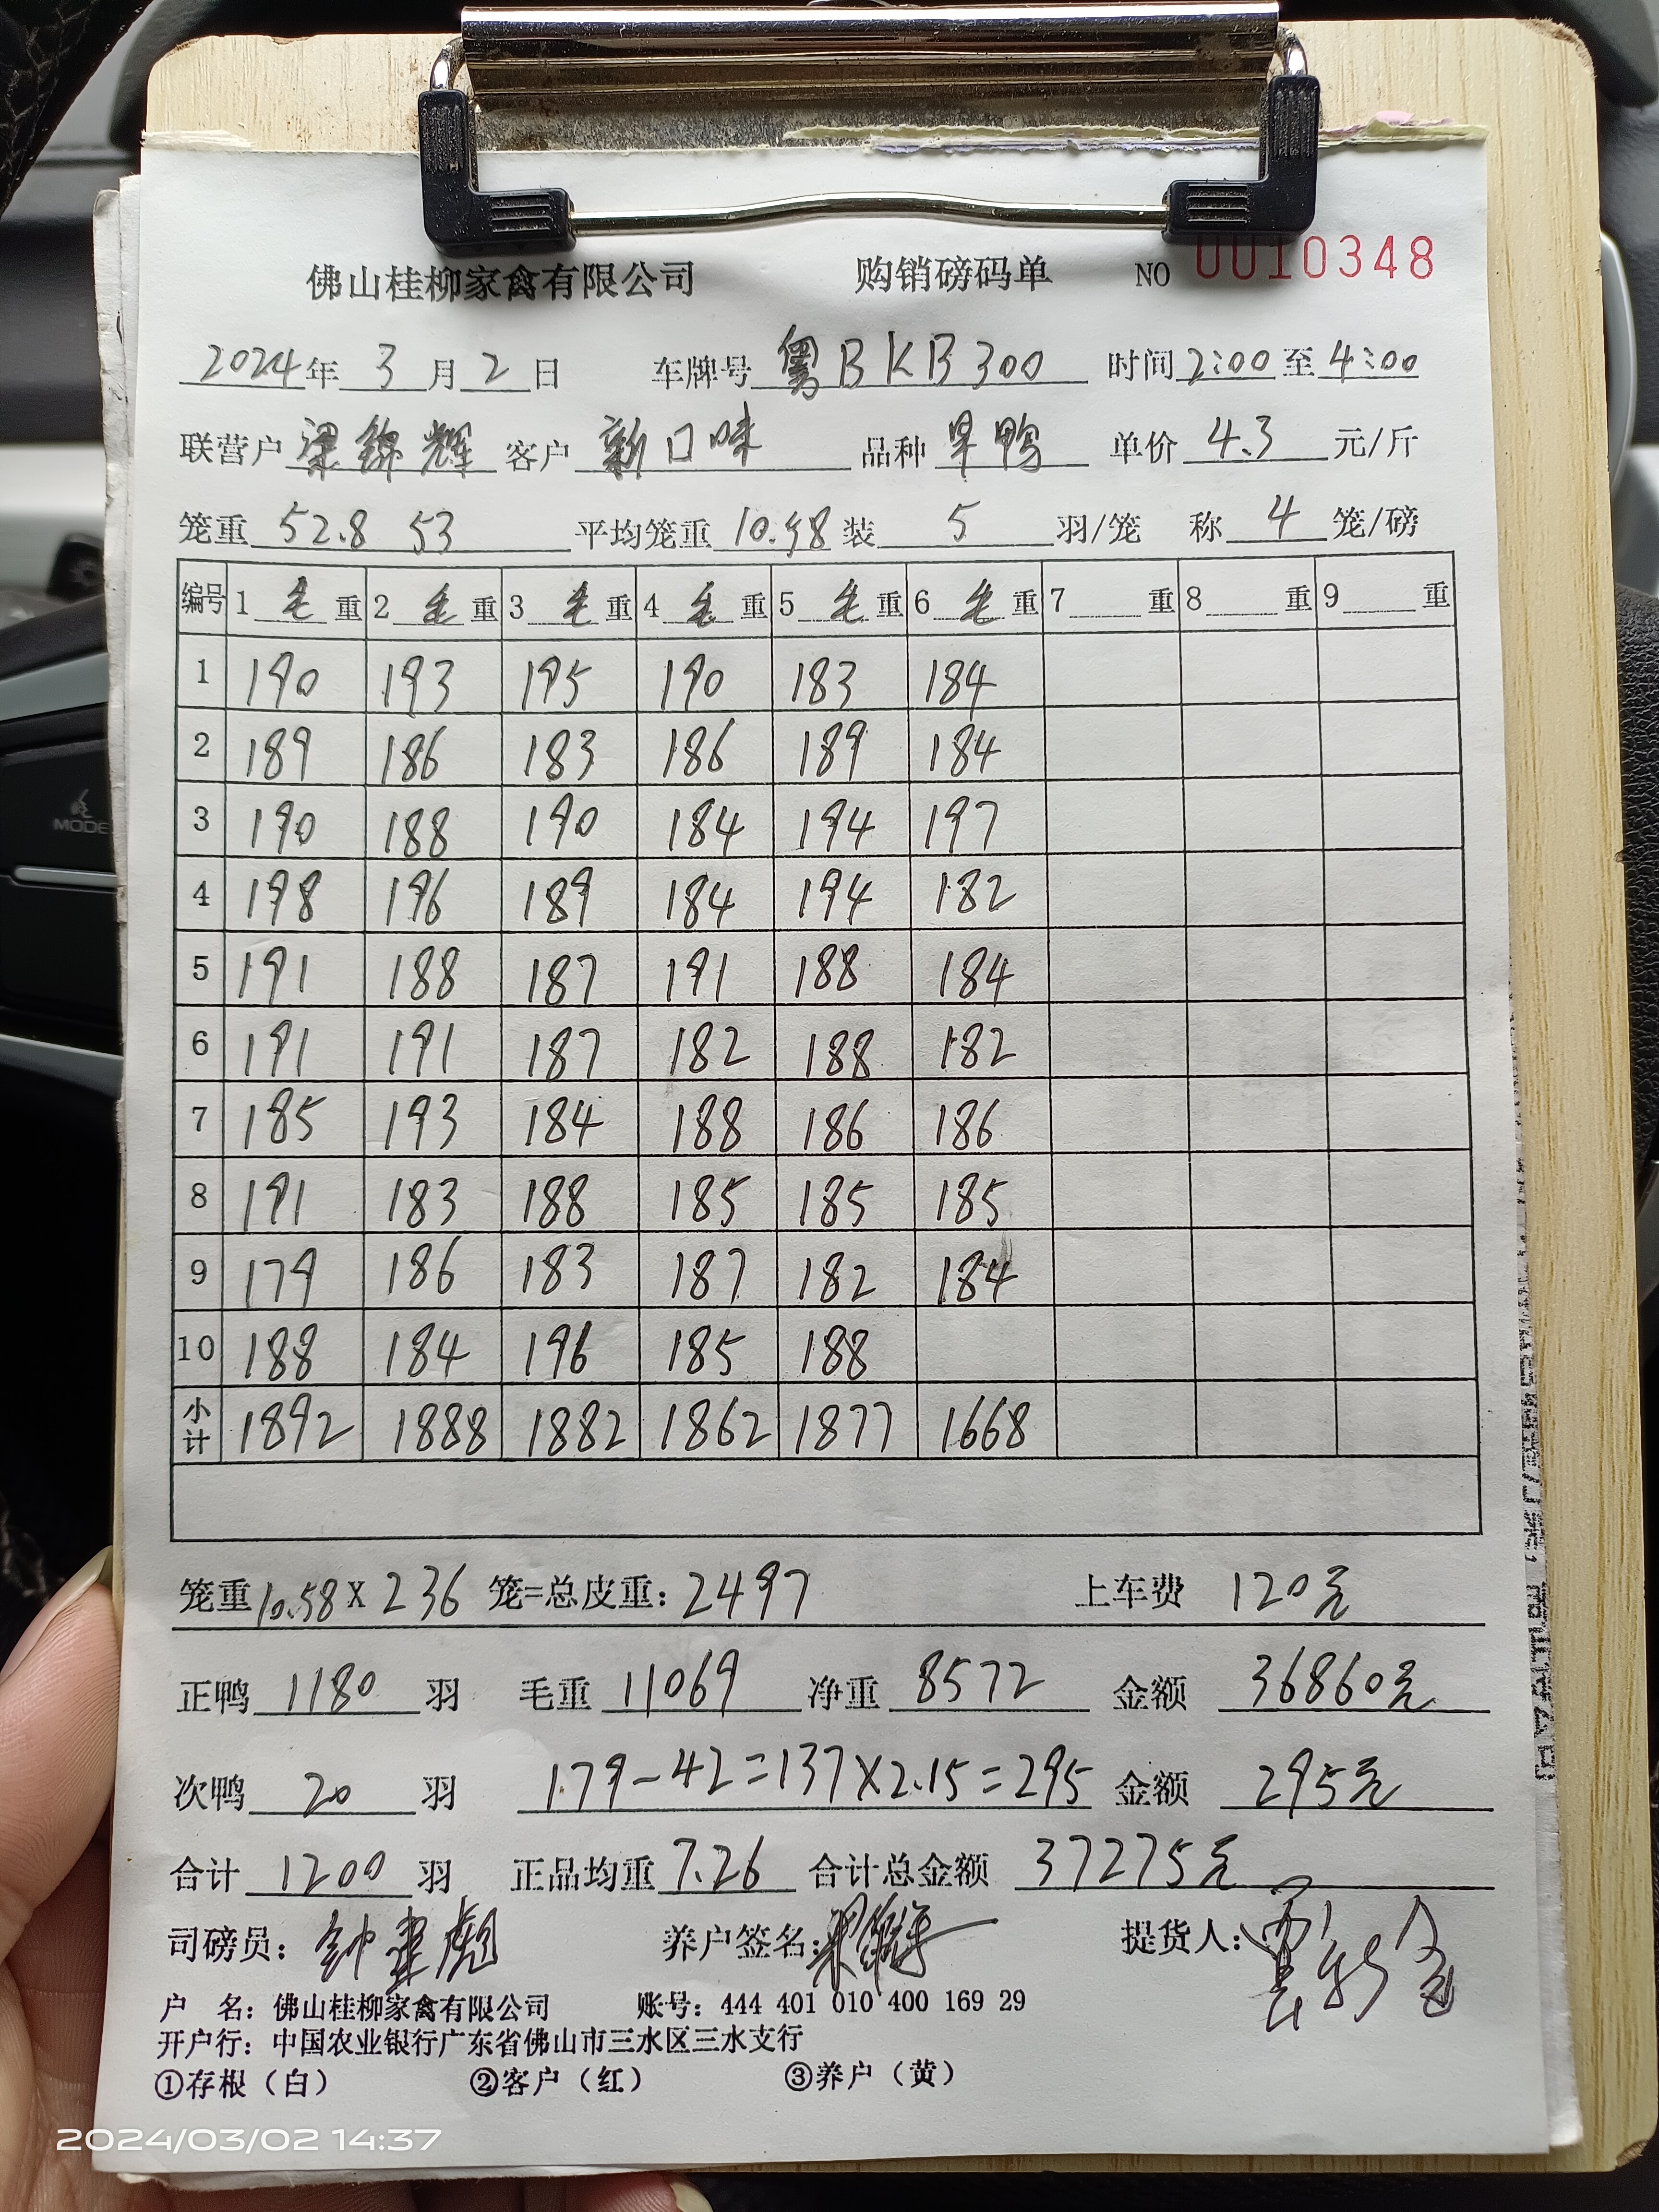 佛山桂柳家禽有限公司 购销磅码单 NO 0010348
2024年 3 月 2 日 车牌号 粤BKB300 时间 2:00 至 4:00
联营户 梁锦辉 客户 新口味 品种 旱鸭 单价 4.3 元/斤
笼重 52.8 53 平均笼重 10.58 装 5 羽/笼 称 4 笼/磅
编号 1 毛 重 2 毛 重 3 毛 重 4 毛 重 5 毛 重 6 毛 重 7 重 8 重 9 重
1 190 193 195 190 183 184
2 189 186 183 186 189 184
3 190 188 190 184 194 197
4 198 196 189 184 194 182
5 191 188 187 191 188 184
6 191 191 187 182 188 182
7 185 193 184 188 186 186
8 191 183 188 185 185 185
9 179 186 183 187 182 184
10 188 184 196 185 188
小计 1892 1888 1882 1862 1877 1668
笼重 10.58 X 236 笼=总皮重: 2497 上车费 120元
正鸭 1180 羽 毛重 11069 净重 8572 金额 36860元
次鸭 20 羽 179-42=137×2.15=295 金额 295元
合计 1200 羽 正品均重 7.26 合计总金额 37275元
司磅员: 钟建彪 养户签名: 提货人:
户 名: 佛山桂柳家禽有限公司 账号: 444 401 010 400 169 29
开户行: 中国农业银行广东省佛山市三水区三水支行
①存根（白） ②客户（红） ③养户（黄）
MODE
2024/03/02 14:37